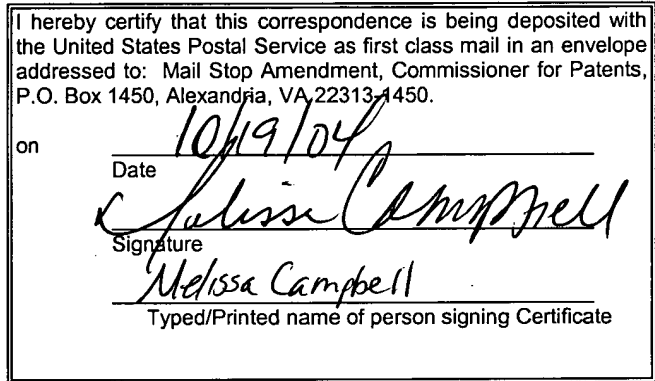 I hereby certify that this correspondence is being deposited with
the United States Postal Service as first class mail in an envelope
addressed to: Mail Stop Amendment, Commissioner for Patents,
P.O. Box 1450, Alexandria, VA 22313-1450.
on 10/19/04
Date
Melissa Campbell
Signature
Melissa Campbell
Typed/Printed name of person signing Certificate